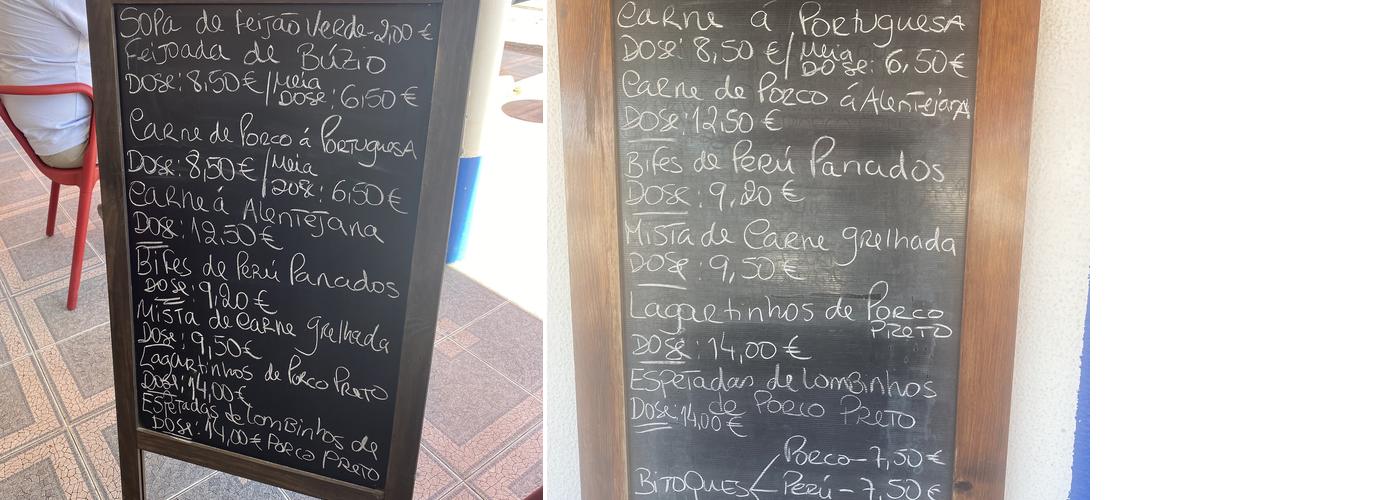 Sopa de Feijão Verde-2,00 €
Feijoada de Búzio
Dose: 8,50 € / Meia Dose: 6,50 €
Carne de Porco á Portuguesa
Dose: 8,50 € / Meia Dose: 6,50 €
Carne á Alentejana
Dose: 12,50 €
Bifes de Perú Panados
Dose: 9,20 €
Mista de Carne grelhada
Dose: 9,50 €
Lagartinhos de Porco Preto
Dose: 14,00 €
Espetadas de Lombinhos de
Dose: 14,00 € Porco Preto
Carne á Portuguesa
Dose: 8,50 € / Meia Dose: 6,50 €
Carne de Porco á Alentejana
Dose: 12,50 €
Bifes de Perú Panados
Dose: 9,20 €
Mista de Carne grelhada
Dose: 9,50 €
Lagartinhos de Porco
Preto
Dose: 14,00 €
Espetadas de lombinhos
Dose: 14,00 € de Porco Preto
Porco - 7,50 €
Bitoques Perú - 7,50 €